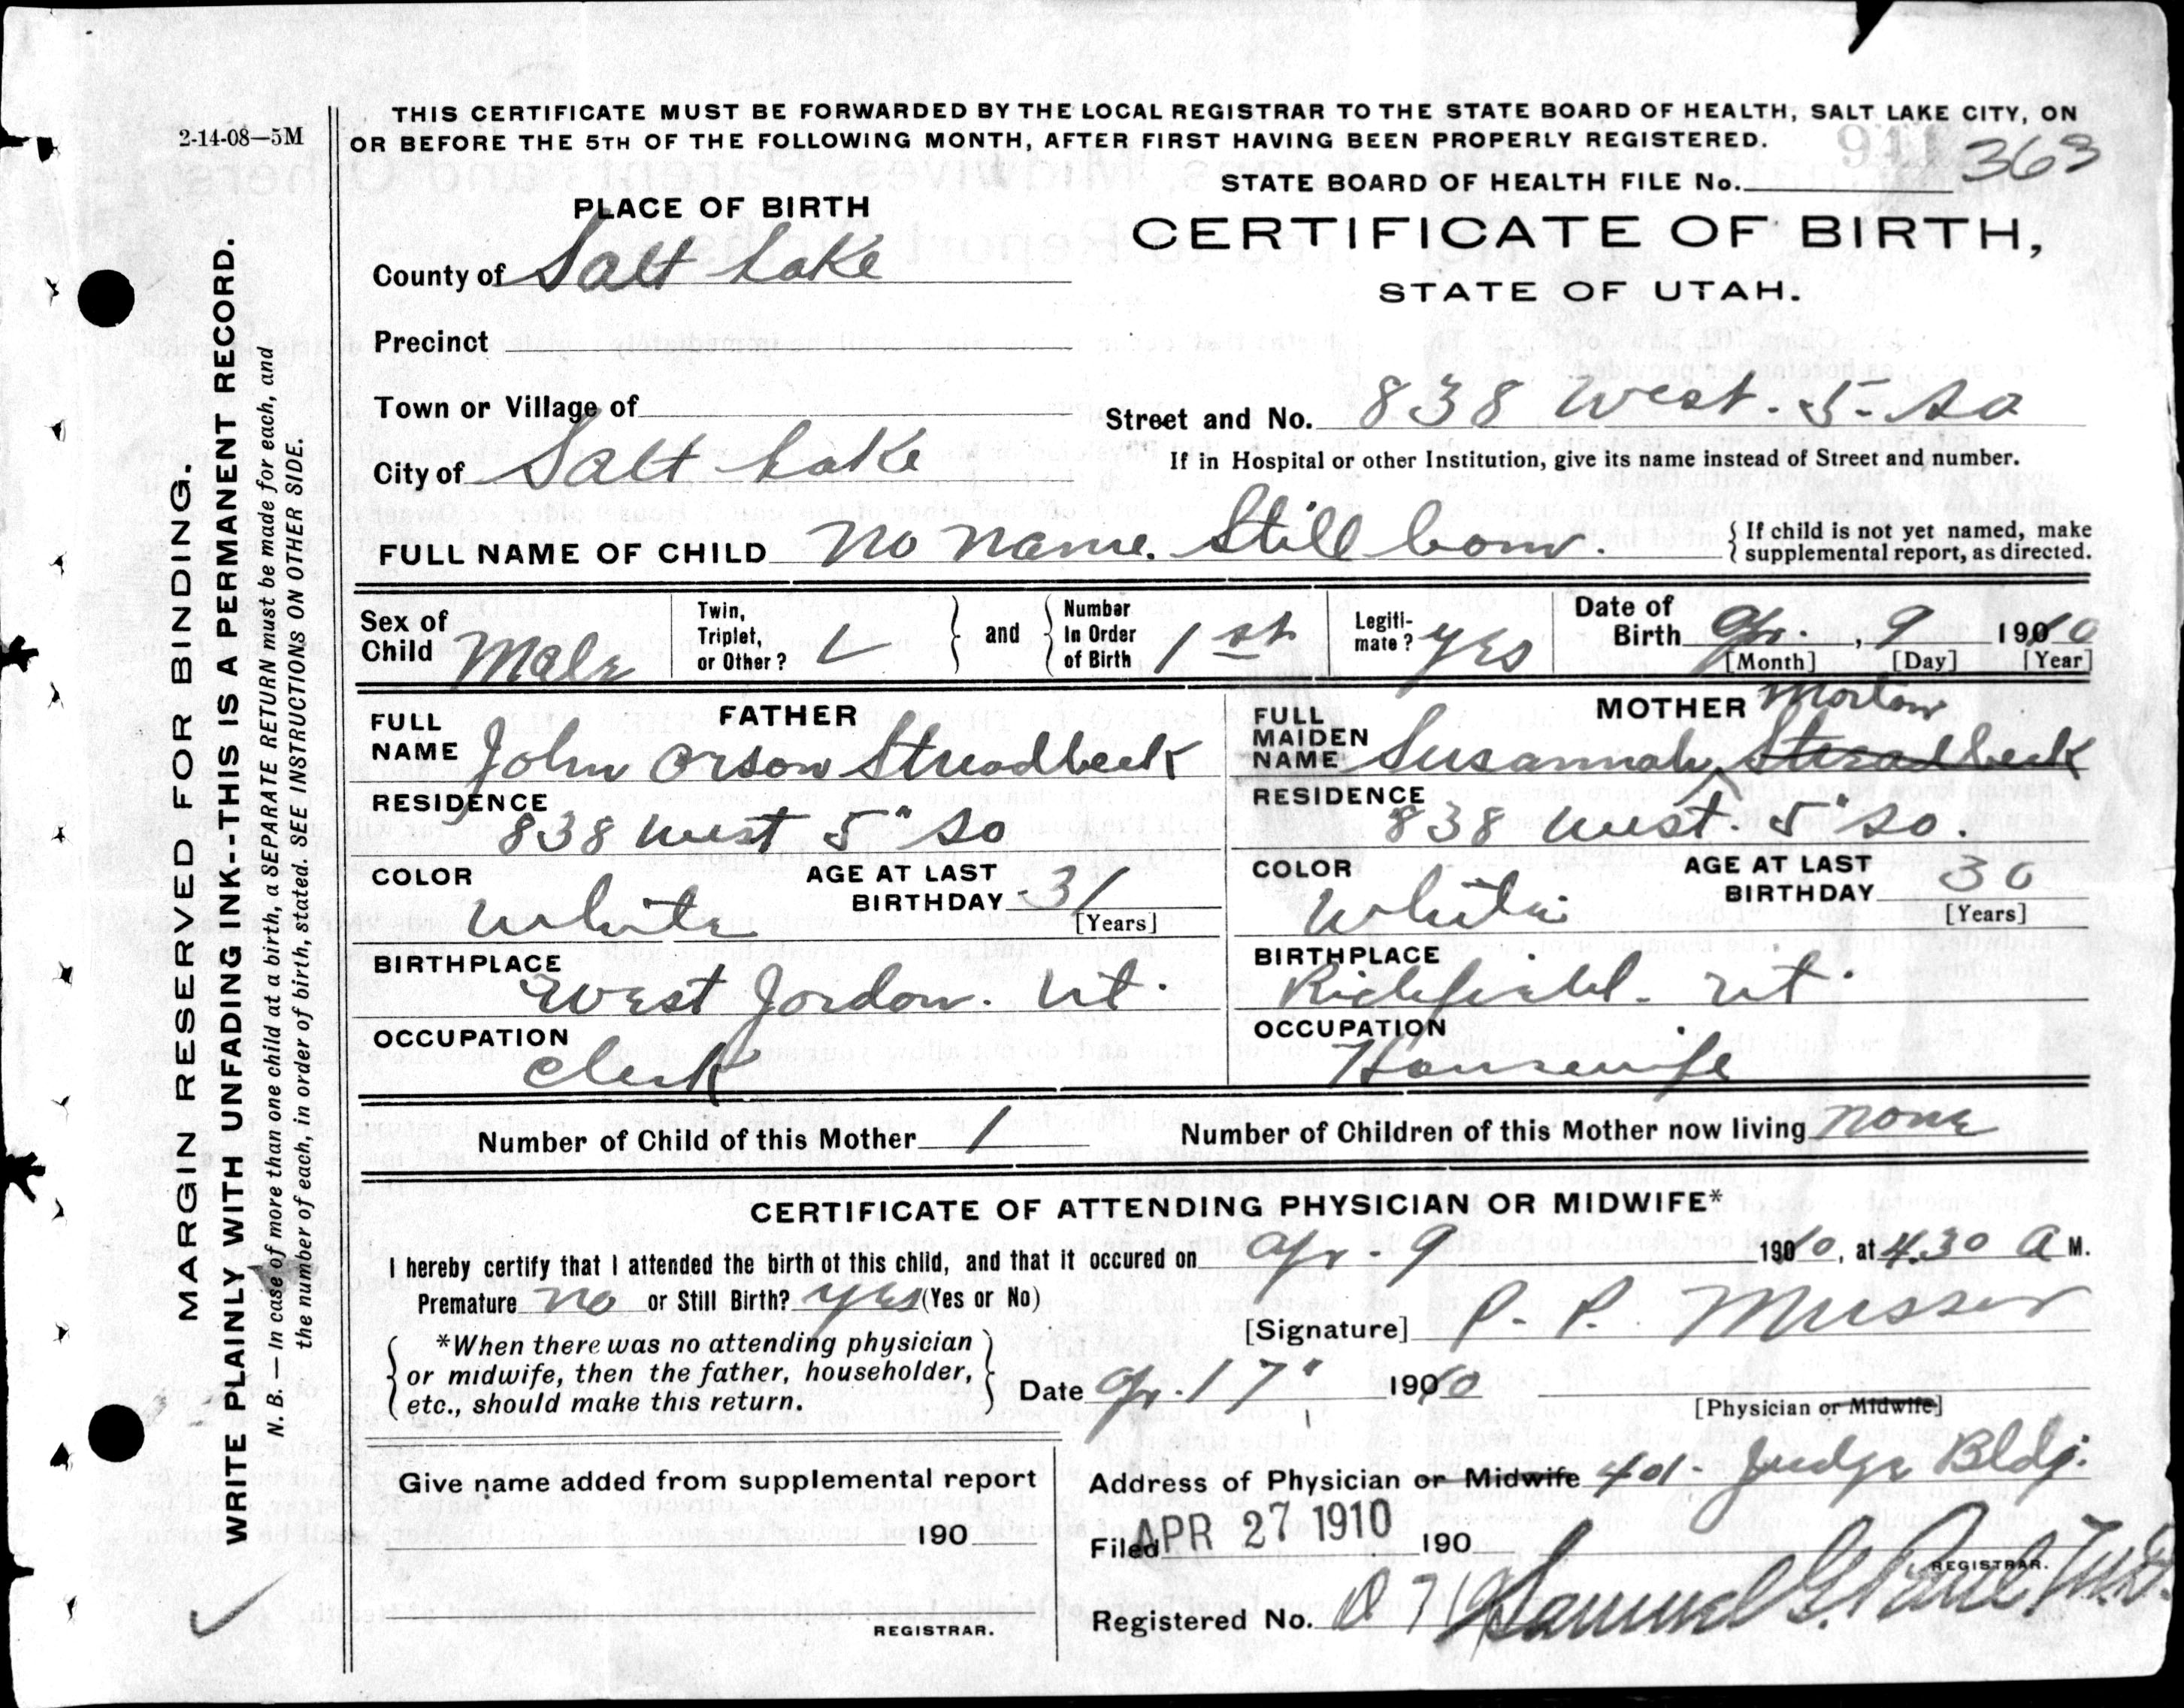 2-14-08—5M
THIS CERTIFICATE MUST BE FORWARDED BY THE LOCAL REGISTRAR TO THE STATE BOARD OF HEALTH, SALT LAKE CITY, ON
OR BEFORE THE 5TH OF THE FOLLOWING MONTH, AFTER FIRST HAVING BEEN PROPERLY REGISTERED.
STATE BOARD OF HEALTH FILE No. 363
PLACE OF BIRTH
CERTIFICATE OF BIRTH,
STATE OF UTAH.
County of Salt Lake
Precinct
Town or Village of
Street and No. 838 West. 5- So
City of Salt Lake
If in Hospital or other Institution, give its name instead of Street and number.
FULL NAME OF CHILD No name. Still born.
{ If child is not yet named, make
supplemental report, as directed.
Sex of
Child Male
Twin,
Triplet,
or Other?
} and {
Number
In Order
of Birth 1st
Legiti-
mate? yes
Date of
Birth Apr. , 9 1910
[Month] [Day] [Year]
FATHER
FULL
NAME John Orson Streadbeck
RESIDENCE
838 West 5" So
COLOR
White
AGE AT LAST
BIRTHDAY 31
[Years]
BIRTHPLACE
West Jordon. Ut.
OCCUPATION
Clerk
MOTHER
Morton
FULL
MAIDEN
NAME Susannah Streadbeck
RESIDENCE
838 West. 5" So.
COLOR
White
AGE AT LAST
BIRTHDAY 30
[Years]
BIRTHPLACE
Richfield. Ut.
OCCUPATION
Housewife
Number of Child of this Mother 1
Number of Children of this Mother now living none
CERTIFICATE OF ATTENDING PHYSICIAN OR MIDWIFE*
I hereby certify that I attended the birth of this child, and that it occured on Apr - 9 1910, at 4.30 A M.
Premature no or Still Birth? yes (Yes or No)
[Signature] P. P. Musser
{ *When there was no attending physician
or midwife, then the father, householder,
etc., should make this return. }
Date Apr. 17" 1910
[Physician or Midwife]
Give name added from supplemental report
190
REGISTRAR.
Address of Physician or Midwife 401- Judge Bldg.
Filed APR 27 1910 190
REGISTRAR.
Registered No. Samuel G. Paul M.D.
MARGIN RESERVED FOR BINDING.
WRITE PLAINLY WITH UNFADING INK--THIS IS A PERMANENT RECORD.
N. B. — In case of more than one child at a birth, a SEPARATE RETURN must be made for each, and
the number of each, in order of birth, stated. SEE INSTRUCTIONS ON OTHER SIDE.